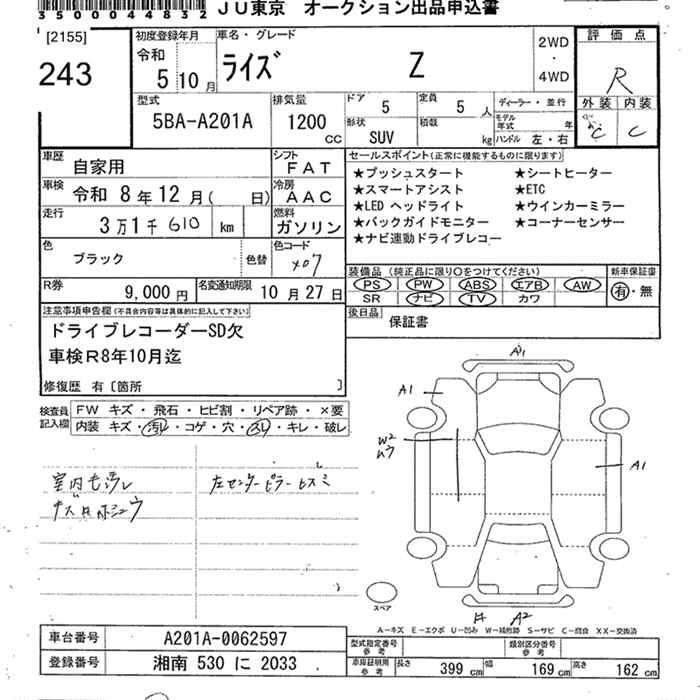 35004832 JU東京 オークション出品申込書
[2155]
243
初度登録年月
令和
5 10月
車名・グレード
ライズ Z
2WD
・
4WD
評価点
R
外装 内装
C C
型式
5BA-A201A
排気量
1200 CC
ドア 5
定員 5人
形状 SUV
積載 kg
ディーラー・並行
モデル年式 年
ハンドル 左・右
車歴 自家用
シフト FAT
車検 令和 8年12月( 日)
冷房 AAC
走行 3万1千610 km
燃料 ガソリン
色 ブラック
色替
色コード X07
R券 9,000円
名変通知期限 10月27日
セールスポイント(正常に機能するものに限ります)
★プッシュスタート ★シートヒーター
★スマートアシスト ★ETC
★LED ヘッドライト ★ウインカーミラー
★バックガイドモニター ★コーナーセンサー
★ナビ連動ドライブレコー
装備品(純正品に限り○をつけてください)
PS PW ABS エアB AW
SR ナビ TV カワ
新車保証書
有・無
後日品 保証書
注意事項申告欄(不具合内容等は具体的に記入して下さい)
ドライブレコーダーSD欠
車検R8年10月迄
修復歴 有〔箇所 〕
検査員記入欄
FW キズ・飛石・ヒビ割・リペア跡・×要
内装 キズ・汚レ・コゲ・穴・スレ・キレ・破レ
室内セ汚レ
左センターピラーヒズミ
A1
A1
W2
A1
A2
スペア
A-キズ E-エクボ U-凹み W-補修跡 S-サビ C-腐食 XX-交換済
車台番号 A201A-0062597
登録番号 湘南 530 に 2033
型式指定番号 参考
類別区分番号 参考
車庫証明用 参考
長さ 399 cm 幅 169 cm 高さ 162 cm